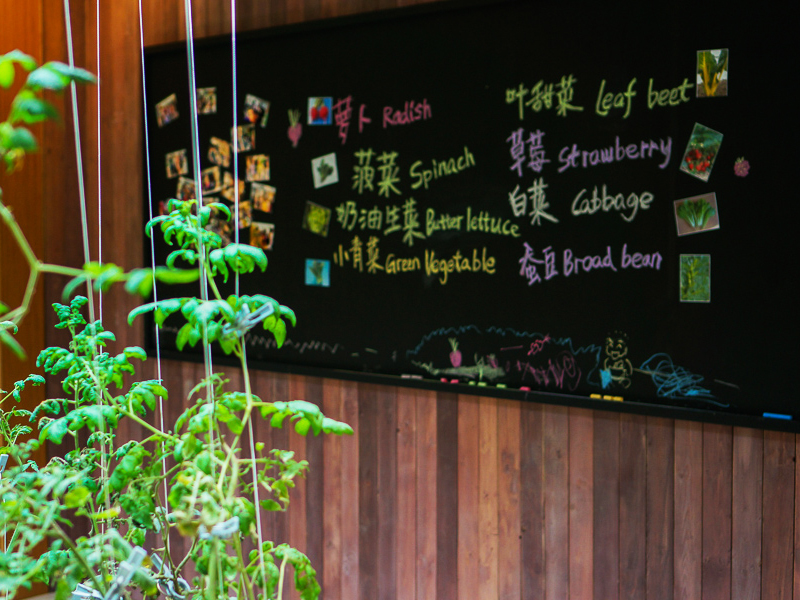 萝卜 Radish
菠菜 Spinach
奶油生菜 Butter lettuce
小青菜 Green Vegetable
叶甜菜 Leaf beet
草莓 Strawberry
白菜 Cabbage
蚕豆 Broad bean